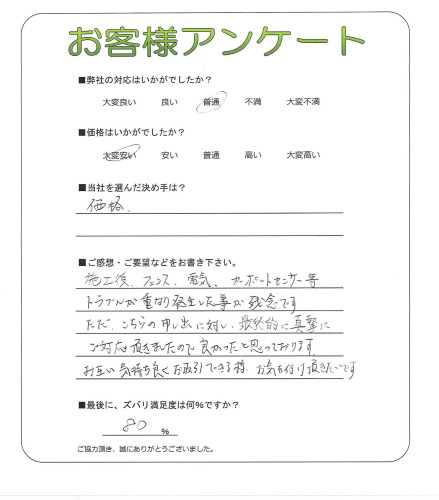 お客様アンケート
■弊社の対応はいかがでしたか?
大変良い 良い 普通 不満 大変不満
■価格はいかがでしたか?
大変安い 安い 普通 高い 大変高い
■当社を選んだ決め手は?
価格、
■ご感想・ご要望などをお書き下さい。
施工後、フェンス、電気、カーポートセンサー等
トラブルが重なり発生した事が残念です
ただ、こちらの申し出に対し、最終的に真摯に
ご対応頂きましたので良かったと思っております。
お互い気持ち良くお取引できる様、お気を付け頂きたいです
■最後に、ズバリ満足度は何%ですか?
80 %
ご協力頂き、誠にありがとうございました。